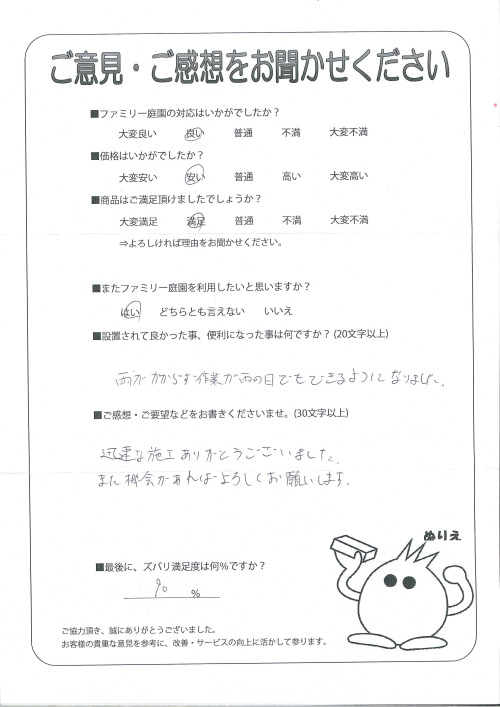 ご意見・ご感想をお聞かせください
■ファミリー庭園の対応はいかがでしたか？
大変良い 良い 普通 不満 大変不満
■価格はいかがでしたか？
大変安い 安い 普通 高い 大変高い
■商品はご満足頂けましたでしょうか？
大変満足 満足 普通 不満 大変不満
⇒よろしければ理由をお聞かせください。
■またファミリー庭園を利用したいと思いますか？
はい どちらとも言えない いいえ
■設置されて良かった事、便利になった事は何ですか？(20文字以上)
雨がかからず作業が雨の日でもできるようになりました。
■ご感想・ご要望などをお書きくださいませ。(30文字以上)
迅速な施工ありがとうございました。
また機会があればよろしくお願いします。
ぬりえ
■最後に、ズバリ満足度は何％ですか？
90 %
ご協力頂き、誠にありがとうございました。
お客様の貴重な意見を参考に、改善・サービスの向上に活かして参ります。